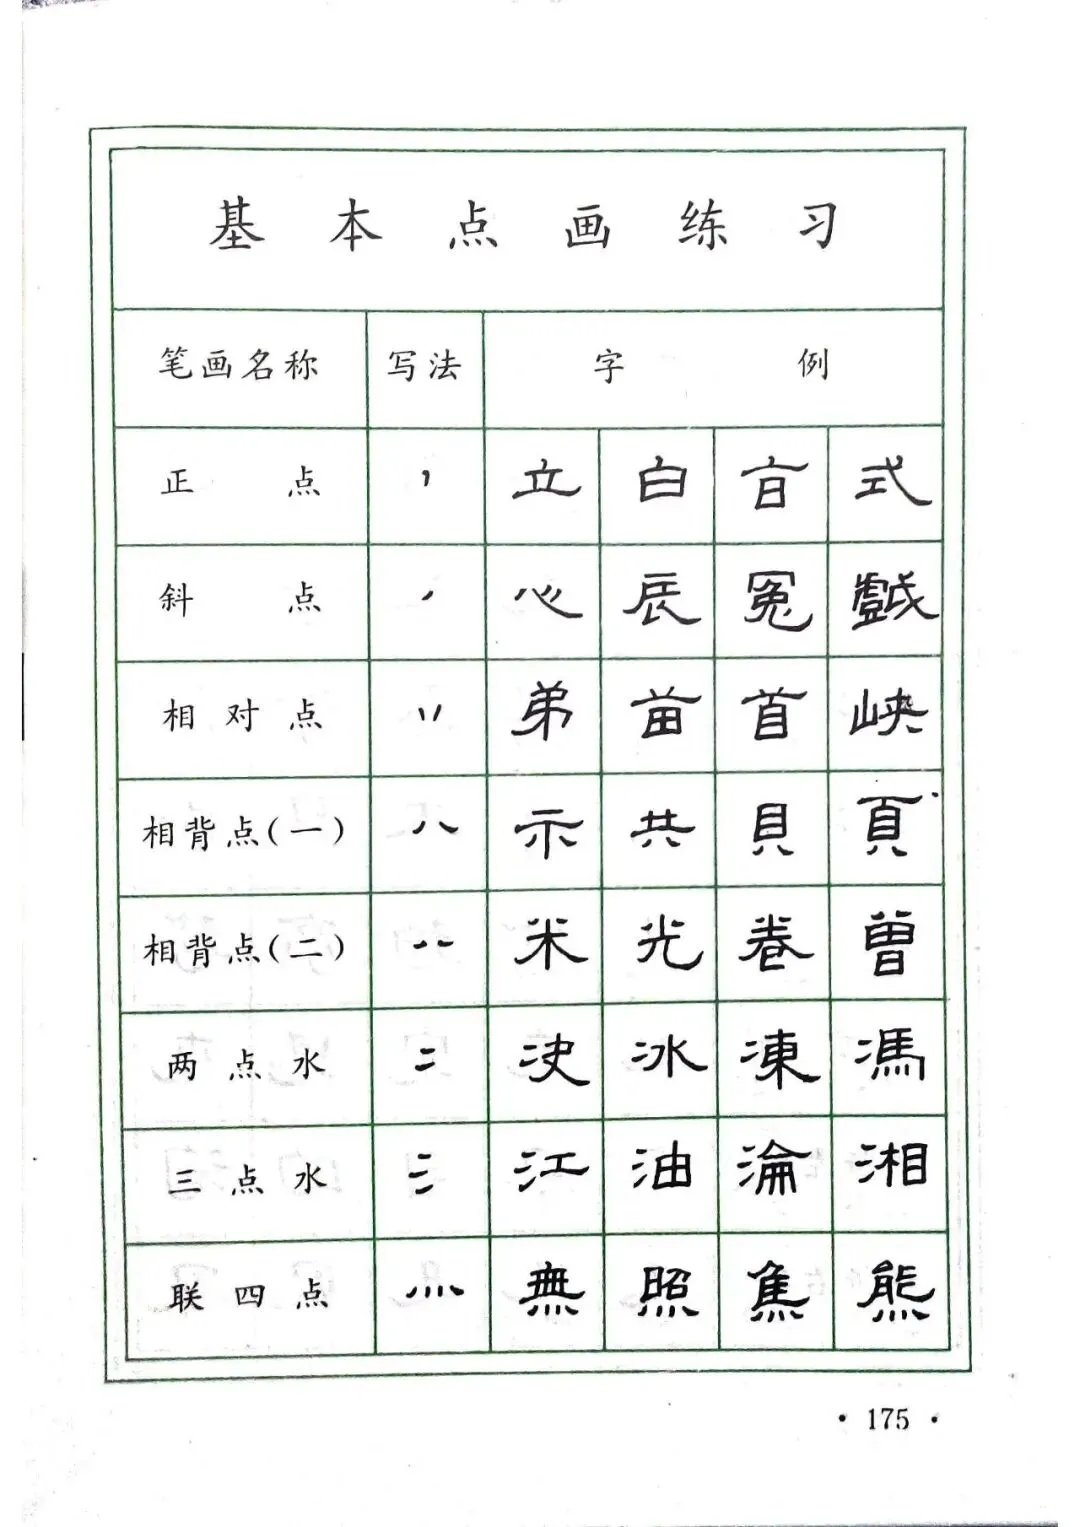 基本点画练习
笔画名称 写法 字例
正点 立 白 亩 式
斜点 心 辰 冤
相对点 弟 苗 首 峡
相背点(一) 示 共 貝 頁
相背点(二) 米 光 卷 曽
两点水 决 冰 凍 馮
三点水 江 油 淪 湘
联四点 無 照 焦 熊
·175·